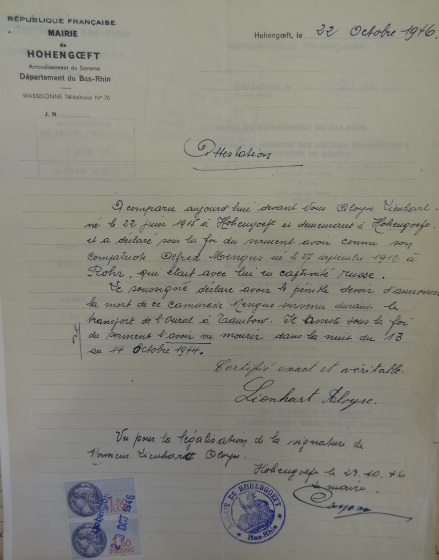 RÉPUBLIQUE FRANÇAISE
MAIRIE
de
HOHENGŒFT
Arrondissement de Saverne
Département du Bas-Rhin
WASSELONNE Téléphone N° 70
J. N
Hohengœft, le 22 Octobre 1946.
Attestation
A comparu aujourd'hui devant Nous Aloyse Lienhart
né le 22 juin 1915 à Hohengoeft et demeurant à Hohengoeft
et a déclaré sous la foi du serment avoir connu son
compatriote Alfred Mengus né le 27 septembre 1912 à
Rohr, qui était avec lui en captivité russe.
Le soussigné déclare avoir le pénible devoir d'annoncer
la mort de ce camarade Mengus survenu durant le
transport de l'Oural à Tambow. Il atteste sous la foi
du serment l'avoir vu mourir dans la nuit du 13
au 14 Octobre 1944.
Certifié exact et véritable.
Lienhart Aloyse.
Vu pour la légalisation de la signature de
Monsieur Lienhardt Aloyse.
Hohengoeft le 23.10.46
Le maire
MAIRIE DE HOHENGOEFT
Bas-Rhin
OCT 1946
50
FRANC